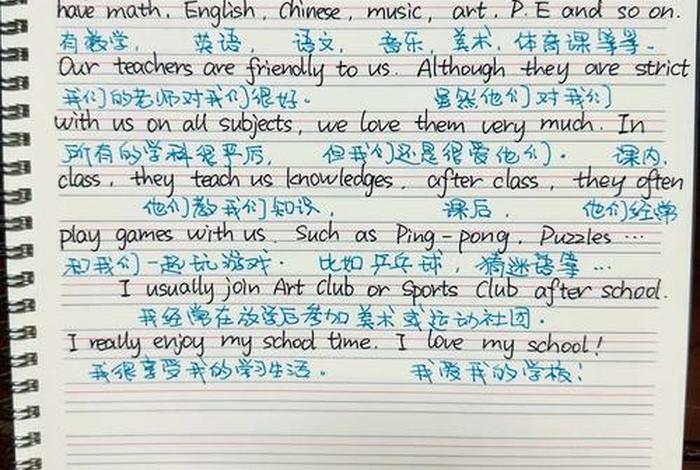 have math, English, Chinese, music, art, P.E and so on.
有数学, 英语, 语文, 音乐, 美术, 体育课等等。
Our teachers are friendly to us. Although they are strict
我们的老师对我们很好。 虽然他们对我们
with us on all subjects, we love them very much. In
所有的学科很严厉, 但我们还是很爱他们. 课内,
class, they teach us knowledges, after class, they often
他们教我们知识, 课后, 他们经常
play games with us. Such as Ping-pong, Puzzles ...
和我们一起玩游戏. 比如乒乓球, 猜迷语等 ...
I usually join Art Club or Sports Club after school.
我经常在放学后参加美术或运动社团.
I really enjoy my school time. I love my school!
我很享受我的学习生活。 我爱我的学校!